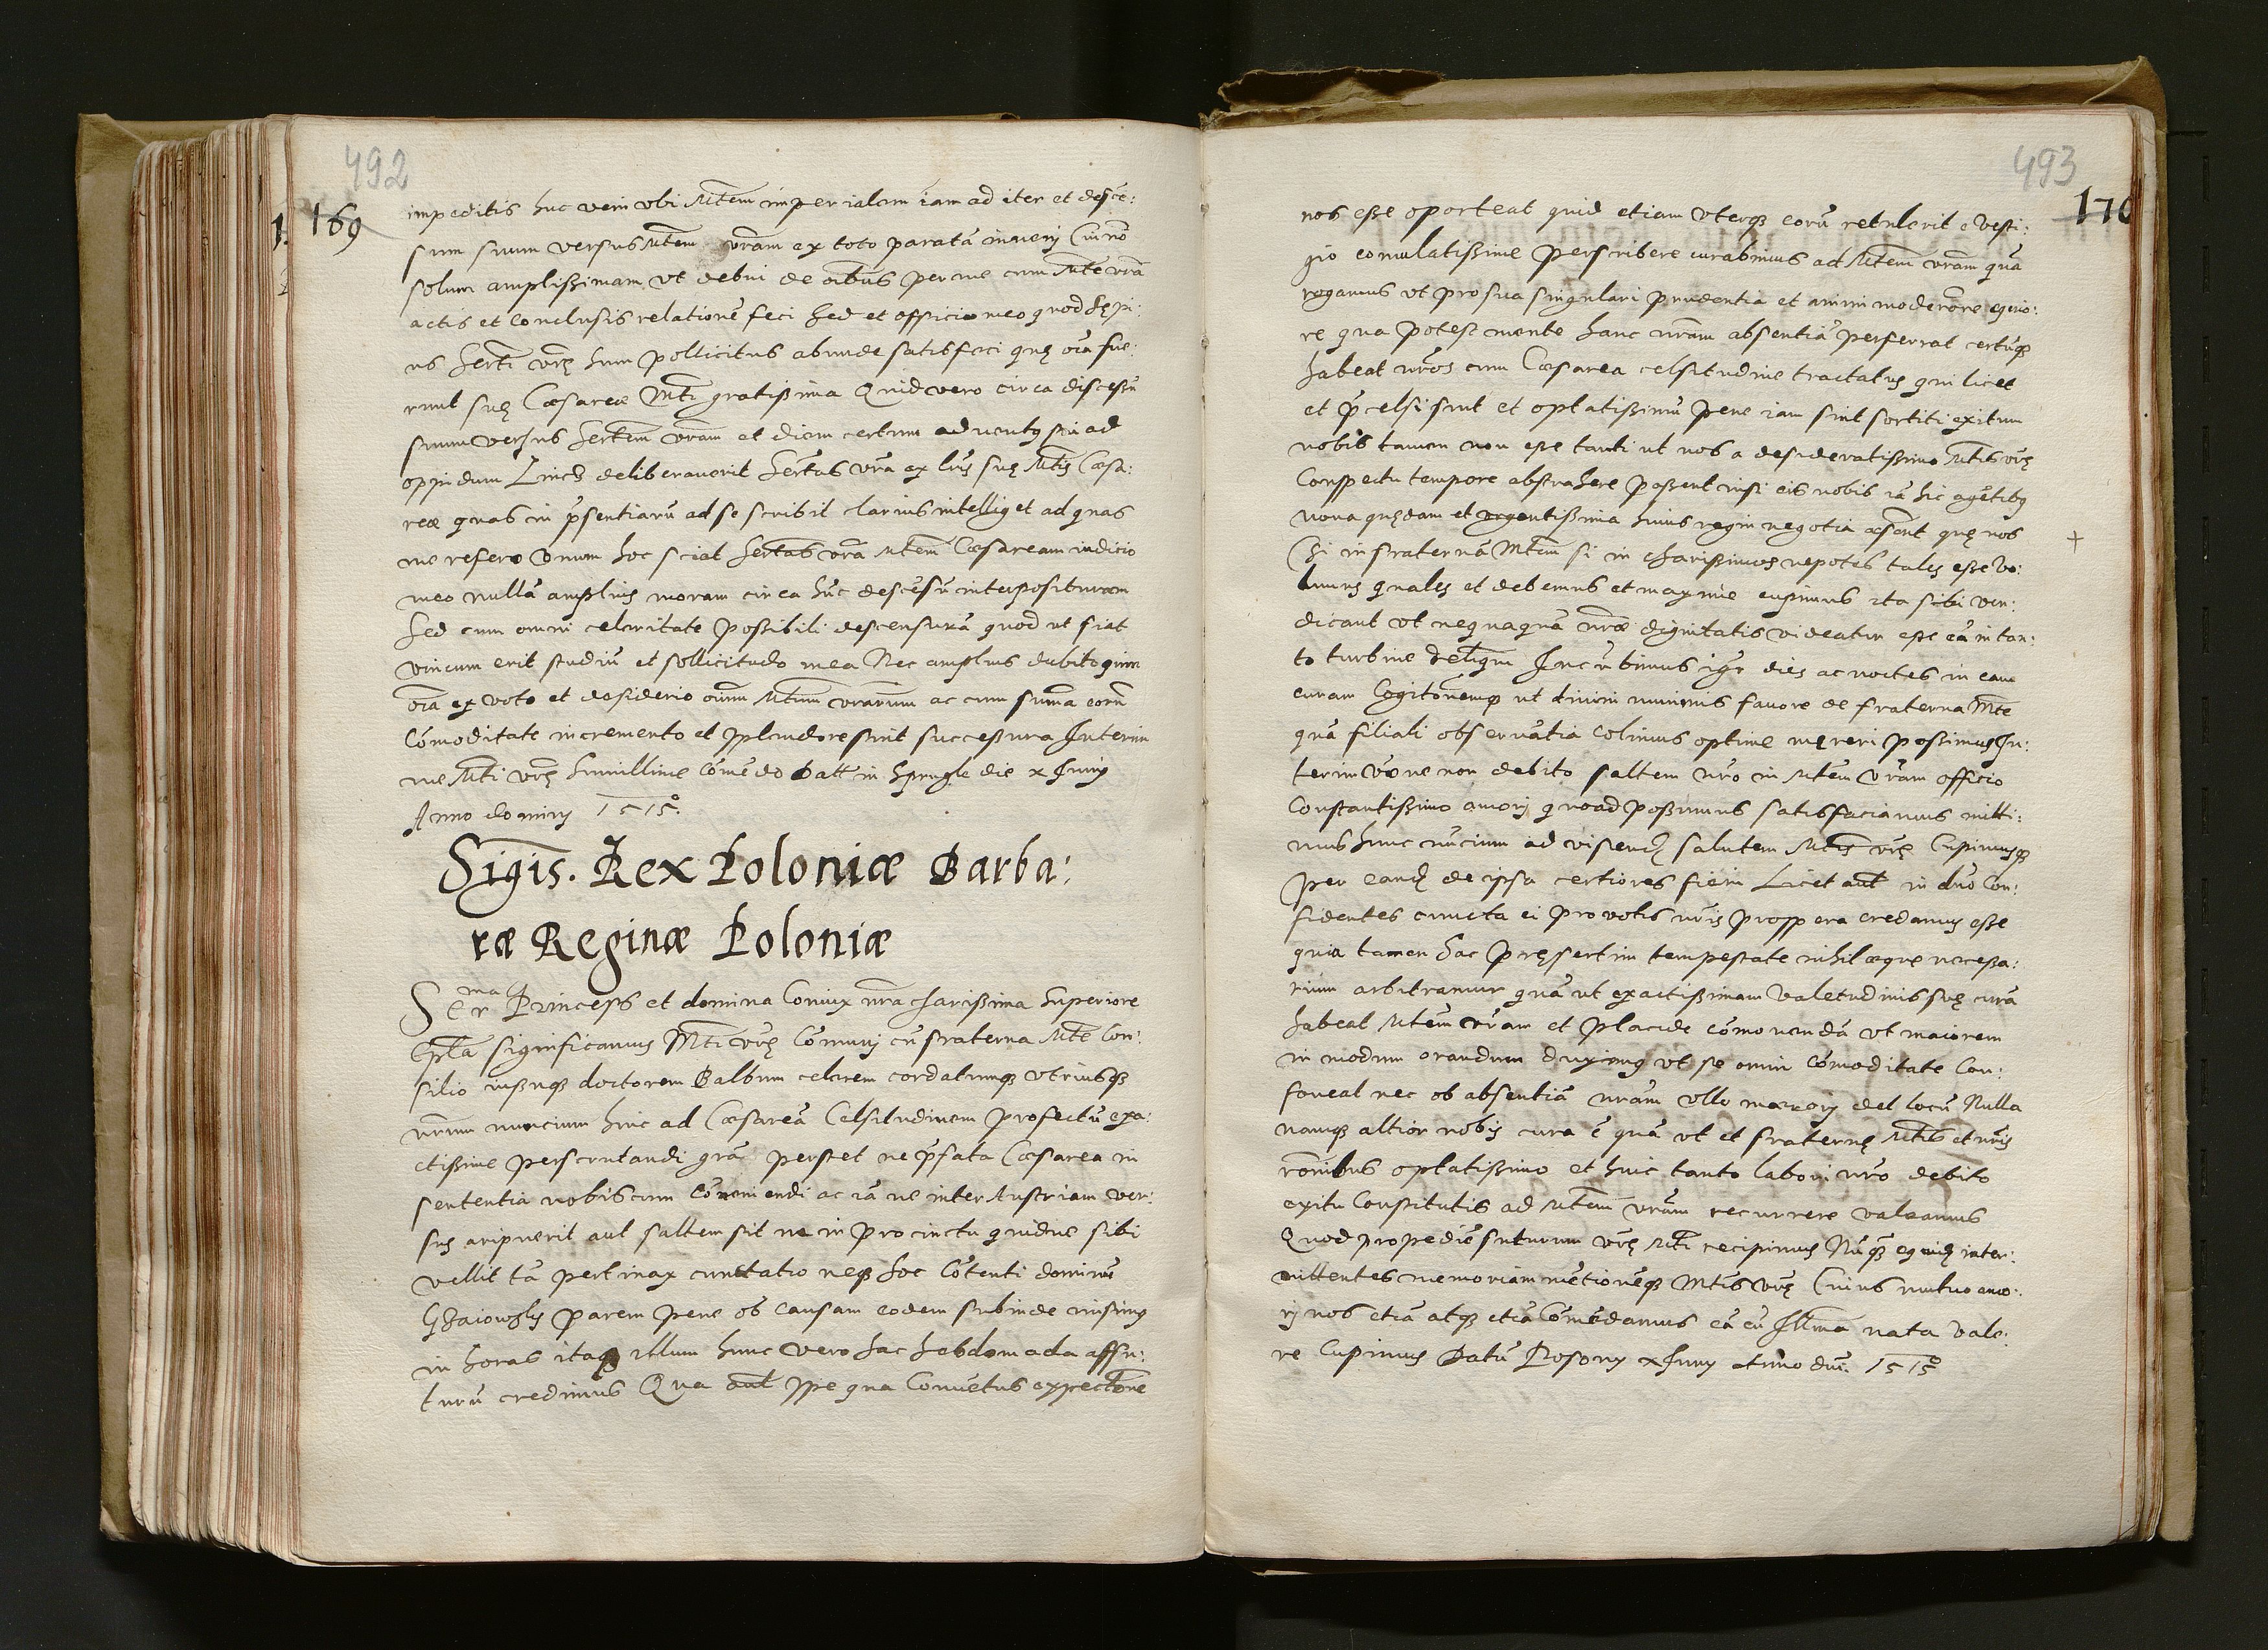 492
169
impeditis huc veni vbi Mtem imperialem iam ad iter et desce:
sum suum versus Mtem vram ex toto paratã inueni Cui nõ
solum amplissimam vt debui de oibus per me cum Mte vrã
actis et conclusis relationẽ feci sed et officio meo quod sępi:
us Serti vrę sum pollicitus abunde satisfeci quę oĩa fue:
runt suę Caesareae Mti gratissima Quid vero circa discessũ
suum versus Sertem vram et diem certum aduentus sui ad
oppidum Lincz deliberauerit Sertas vra ex lris suę Mtis Caesa:
reae quas in p̃sentiarũ ad se scribit clarius intelliget ad quas
me refero Vnum hoc sciat Sertas vra Mtem Caesaream iudicio
meo nullã amplius moram circa hũc descẽsũ interposituram
sed cum omni celeritate possibili descensurã quod ut fiat
vnicum erit studiũ et sollicitudo mea Nec amplius dubito quin
oĩa ex voto et desiderio oĩum Mtum vrarum ac cum sum̃a eorũ
cõmoditate incremento et splendore sint successura Interim
me Mti vrę humillime cõmẽdo Datt in Hsprugk die x Junij
Anno dominij 1515°
Sigis. Rex Poloniæ Barba:
ræ Reginæ Poloniæ
Serma Princeps et domina Coniux nrã charissima Superiore
Epl̃a significauimus Mti vrę Cõmuni cũ fraterna Mte Con:
silio iussuq doctorem Balbum celerem cordatumq vtriusq
nrũm nuncium hinc ad Caesareã Celsitudinem profectũ exa:
ctissime perscrutandi gr̃a perstet ne p̃fata Caesarea in
sententia nobiscum cõueniendi ac iã ne inter Austriam ver:
sus aripuerit aut saltem sit ne in procinctu quidue sibi
vellit tã pertinax cunctatio neq hoc cõtenti dominũ
parem pene ob causam eodem subinde misimus
in horas itaq illum hunc vero hac hebdomada affu:
turũ credimus Qua aut spe qua Conuẽtus expectõne
493
170
nos esse oporteat quid etiam vterq eorũ retulerit e vesti:
gio comulatissime perscribere curabimus ad Mtem vram quã
rogamus vt pro sua singulari prudentia et animi moderõne equio:
re qua potest mente hanc nrãm absentiã perferrat certũq
habeat nr̃os cum Caesarea celsitudine tractatus qui licet
et p̃celsi sint et optatissimũ pene iam sint sortiti exitum
nobis tamen non esse tanti ut nos a desideratissimo Mtis vrę
Conspectu tempore abstrahere possent nisi eis nobis iã hic agẽtibus
noua quędam et vrgentissima huius regni negotia essent quę nos
si in fraternã Mtem si in charissimos nepotes tales esse vo:
lumus quales et debemus et maxime cupimus ita sibi ven:
dicant vt nequaquã nr̃ae dignitatis videatur esse eã in tan:
to turbine delinqui Incũbimus igr̃ dies ac noctes in eam
curam Cogitõnemq ut diuini numinis fauore de fraterna Mte
quã filiali obseruãtia colimus optime mereri possimus In:
terim vero ne non debito saltem nr̃o in Mtem vram officio
Constantissimo amori quoad possumus satisfaciamus mitti:
mus hunc nũcium ad visendã salutem Mtis vrę Cupimusq
per eandẽ de ipsa certiores fieri Licet aut in dño Con:
fidentes cuncta ei pro votis nris prospera credamus esse
quia tamen hac pręsertim tempestate nihil aeque necessa:
rium arbitramur quã ut exactissimam valetudinis suę curã
habeat Mtem vram et placide cõmonendã vt maiorem
in modum orandum duximus vt se omni cõmoditate Con:
foueat nec ob absentiã nrãm vllo merori det locũ Nulla
namq altior nobis cura ẽ quã vt et fraternę Mtis et nris
rõnibus optatissimo et huic tanto labori nro debito
exitu Constitutis ad Mtem vram recurrere valeamus
Quod propediẽ futurum vrę Mti recipimus Nũq equidẽ inter:
mittentes memoriam mẽtionẽq Mtis vrę Cuius mutuo amo:
ri nos etiã atq etiã Cõmẽdamus eã cũ Illma nata vale:
re Cupimus Datũ Posonij x Junij Anno dñi 1515°